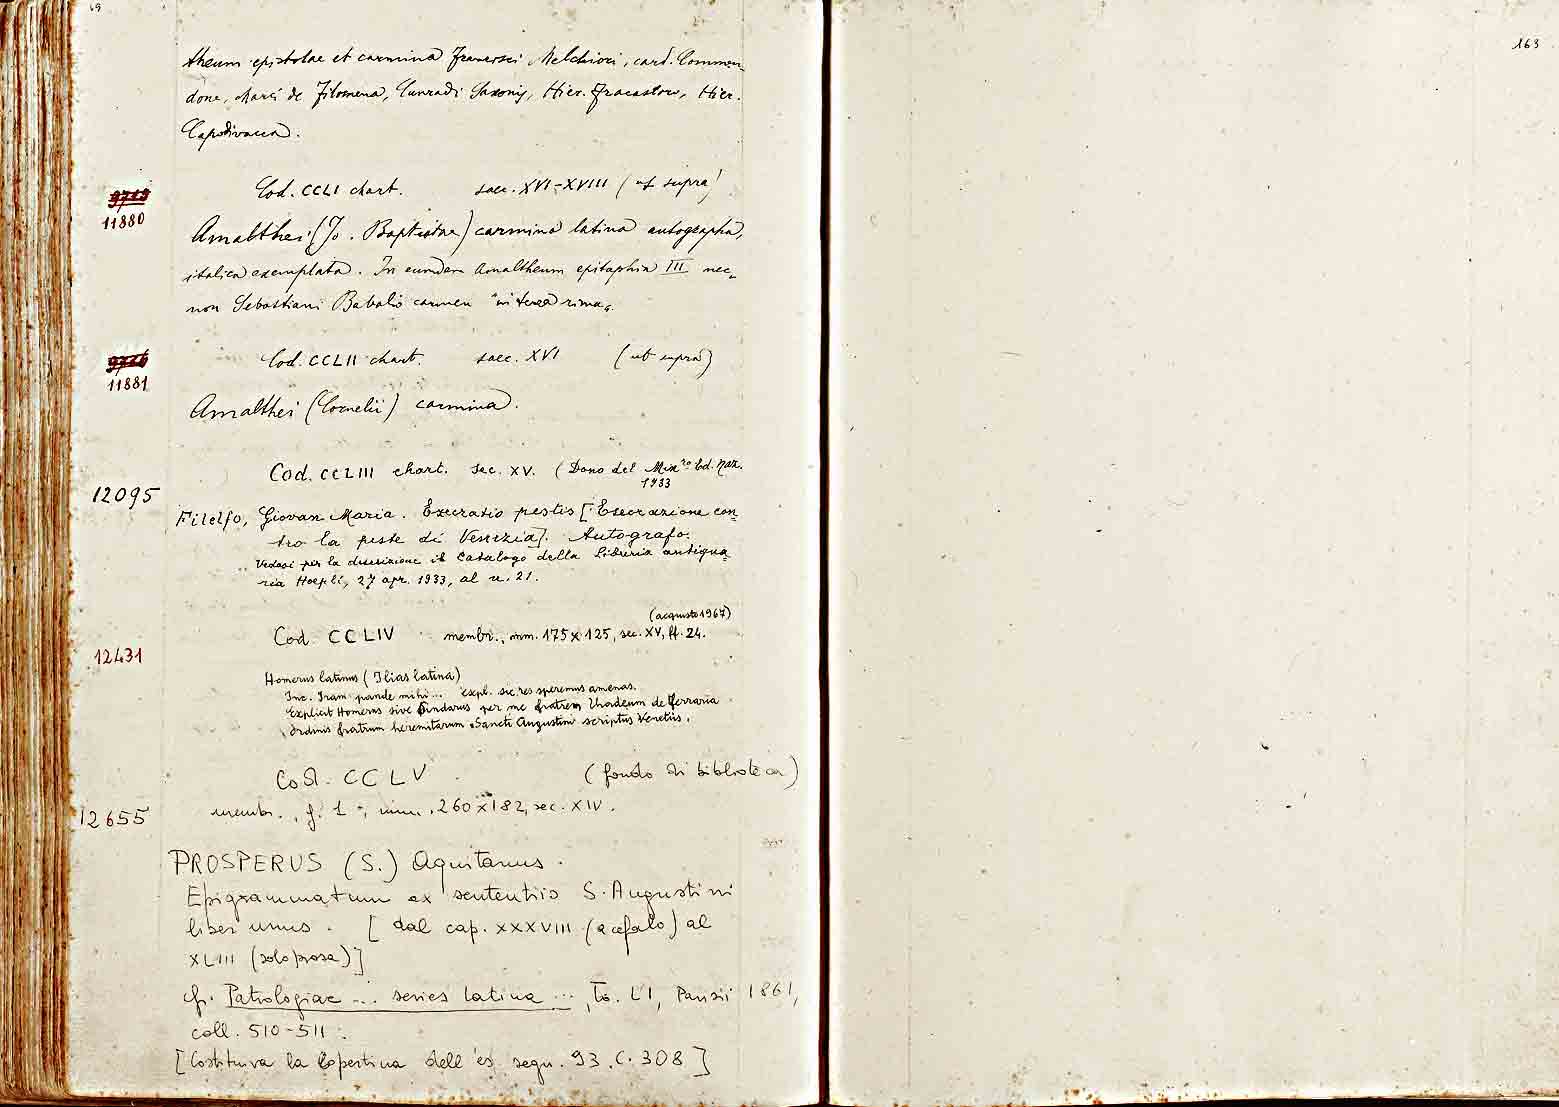 69
163
theum epistolae et carmina Francisci Melchiori, card. Commen-
done, Marci de Filomena, Cunradi Saxonij, Hier. Fracastoro, Hier.
Capodivacca.
Cod. CCLI chart. saec. XVI-XVIII (ut supra)
11880
Amalthei (Jo. Baptistae) carmina latina autographa,
italica exemplata. In eumdem Amaltheum epitaphia III nec-
non Sebastiani carmen "in terza rima".
Cod. CCLII chart. saec. XVI (ut supra)
11881
Amalthei (Cornelii) carmina.
Cod. CCLIII chart. sec. XV. (Dono del Minro Ed. Naz.
1933
12095
Filelfo, Giovan Maria. Execratio pestis [Esecrazione con-
tro la peste di Venezia]. Autografo.
Vedasi per la descrizione il Catalogo della Libreria antiqua-
ria Hoepli, 27 apr. 1933, al n. 21.
(acquisto 1967)
Cod. CCLIV membr., mm. 175x125, sec. XV, ff. 24.
12431
Homerus latinus (Ilias latina)
Inc. Iram pande mihi... expl. sic res speremus amenas.
Explicit Homerus sive Pindarus per me fratrem Thadeum de Ferraria
ordinis fratrum heremitarum Sancti Augustini scriptus Venetiis.
Cod. CCLV (fondo di biblioteca)
membr., f. 1, mm. 260x182, sec. XIV.
12655
PROSPERUS (S.) Aquitanus.
Epigrammatum ex sententiis S. Augustini
liber unus. [dal cap. XXXVIII (acefalo) al
XLIII (solo prosa)]
cfr. Patrologiae ... series latina ..., to. LI, Parisii 1861,
coll. 510-511.
[Costituiva la copertina dell'es. segn. 93.C.308]